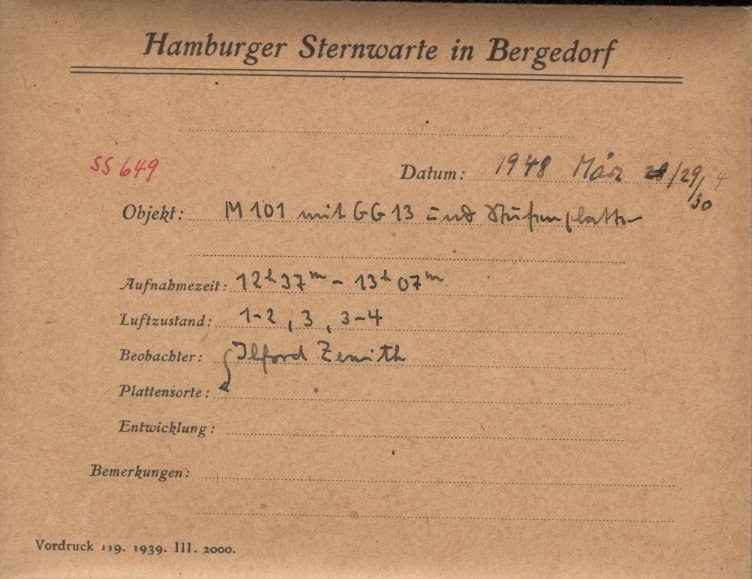 Hamburger Sternwarte in Bergedorf
SS 649
Datum: 1948 März 28/29/30
Objekt: M 101 mit GG 13 und Stufenplatte
Aufnahmezeit: 12h 37m – 13h 07m
Luftzustand: 1-2, 3, 3-4
Beobachter: Ilford Zenith
Plattensorte:
Entwicklung:
Bemerkungen:
Vordruck 119. 1939. III. 2000.